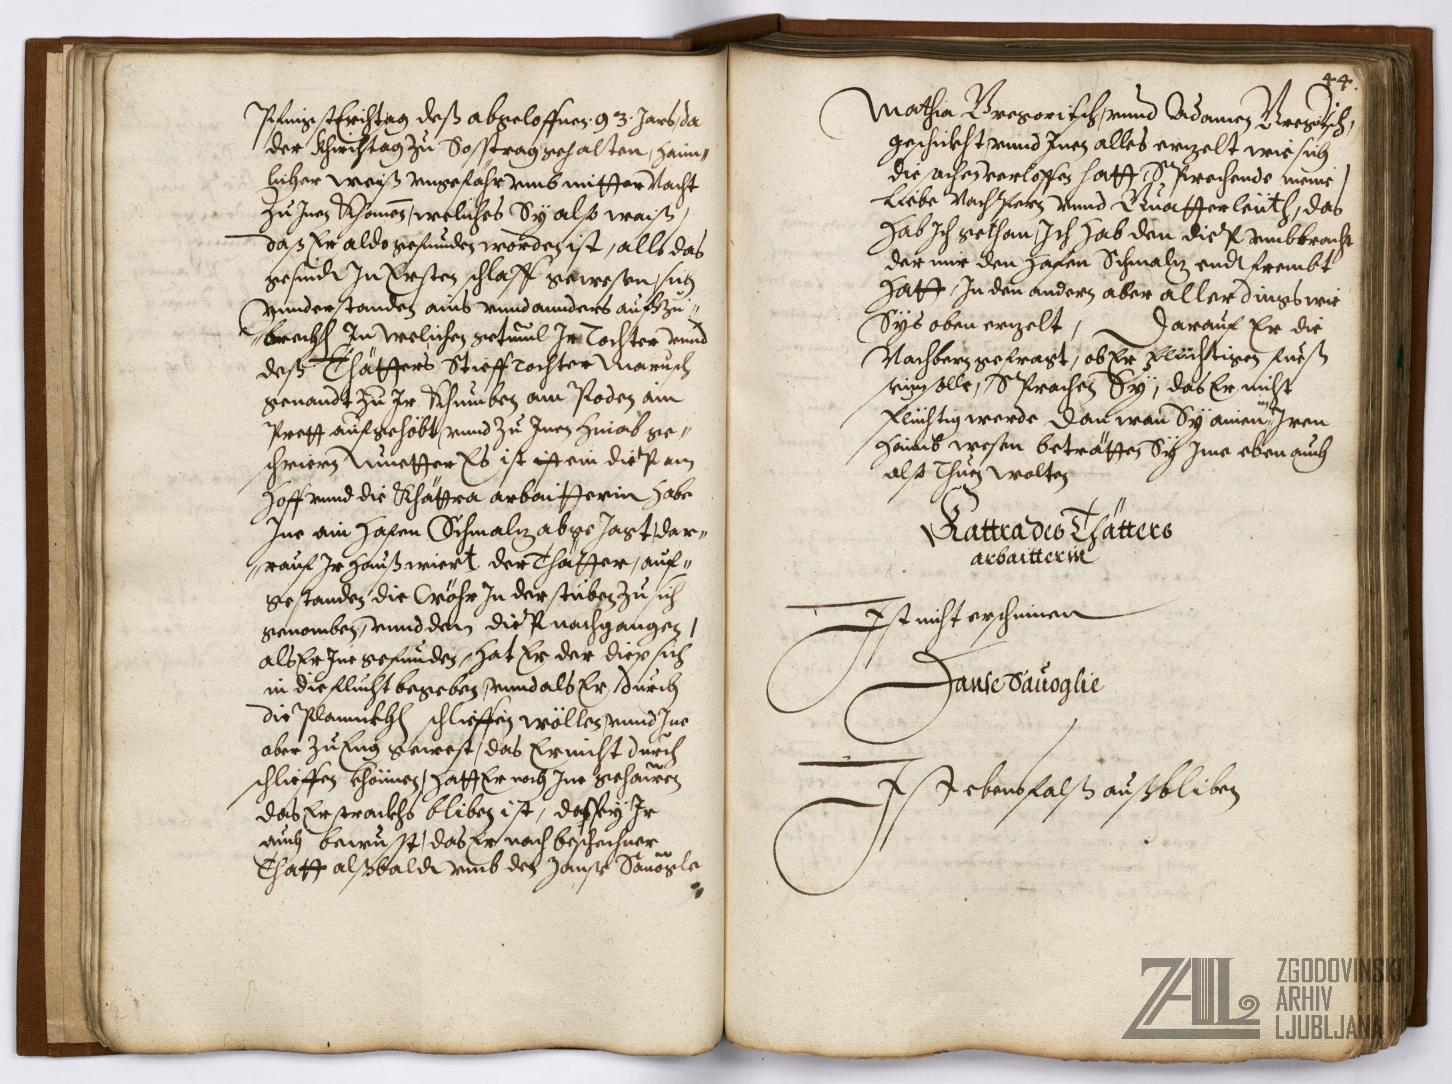 Pfingst Erchtag deß abgeloffnen 93 Jars, da
der Khirchtag zu Sostrag gehalten, haim„
licher weiß ungefähr umb mitter Nacht
zu Inen Khomen, welches Sÿ alß waiß,
daß Er aldo gefunden worden ist, alls das
gesindt In Ersten schlaff gewesen, sich
understanden ains und annders aufzu„
„brechen In welichen getuml Ir Tochter und
deß Thätters Stieff Tochter Marusch
genandt zu Ir Khumben am Poden ain
Prett aufgehöbt, und zu Inen hinab ge„
schriern Muetter Es ist ein dieb am
Hoff und die Khättra arbaitterin habe
Ime ain Hafen Schmalz abgejagt, dar„
„rauf Ir Haußwiert der Thatter, auf„
gestanden die Röhr In der stuben zu sich
genomben, und dem dieb nachgangen,
als Er Ine gefunden, hat Er der dieb sich
in die flucht begeben, und als Er durch
die schlieffen wöllen, und Ine
aber zu Eng gewest, das Er nicht durch
schlieffen khönnen, hatt Er noch Ine gehauen
das Er strackhs bliben ist, dasseÿ Ir
auch bewust, das Er nach beschechner
Thatt alßbaldt umb den Janse Sauogle
44.
Mathia Gregoritsch, und Adamen Gregoritsch,
geschickht und Inen alles erzelt wie sich
die sachen verloffen hatt Sprechende meine
Liebe Nachpern und Gvatterleüth, das
hab Ich gethan, Ich hab den dieb umbbracht
der mir den Hafen Schmalz endtfrembt
hatt, In den andern aber allerdings wie
Sÿs oben erzelt, Darauf Er die
Nachbern gefragt, ob Er flüchtigen fueß
solle, Sprachen Sÿ, das Er nicht
flüchtig werde dan wan Sÿ ainen In Iren
haimb wesen beträtten Sÿ Ime eben auch
also Thuen wolten
Kattra des Thätters
arbaitterin
Ist nicht erschinen
Janse Sauoglie
Ist ebenfalß außbliben
ZAL ZGODOVINSKI
ARHIV
LJUBLJANA